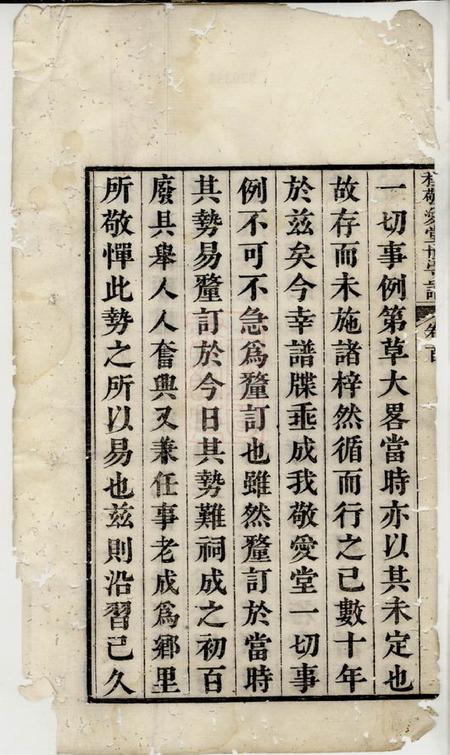 敬愛堂
一切事例第草大畧當時亦以其未定也
故存而未施諸梓然循而行之已數十年
於茲矣今幸譜牒垂成我敬愛堂一切事
例不可不急為釐訂也雖然釐訂於當時
其勢易釐訂於今日其勢難祠成之初百
廢具舉人人奮興又兼任事老成為鄉里
所敬憚此勢之所以易也茲則沿習已久